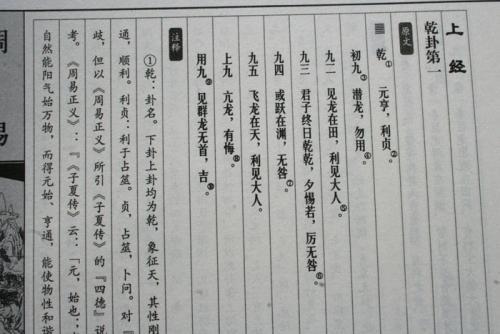 上经
乾卦第一
原文
䷀ 乾①　元亨，利贞②。
初九③　潜龙，勿用④。
九二　见龙在田，利见大人⑤。
九三　君子终日乾乾，夕惕若，厉无咎⑥。
九四　或跃在渊，无咎⑦。
九五　飞龙在天，利见大人。
上九　亢龙，有悔⑧。
用九⑨　见群龙无首，吉⑩。
注释
①乾：卦名。下卦上卦均为乾，象征天，其性刚
通，顺利。利贞：利于占筮。贞，占筮，卜问。对『
歧，但以《周易正义》所引《子夏传》的『四德』说
考。《周易正义》：『《子夏传》云：「元，始也；
自然能阳气始万物，而得元始、亨通，能使物性和谐
周
易